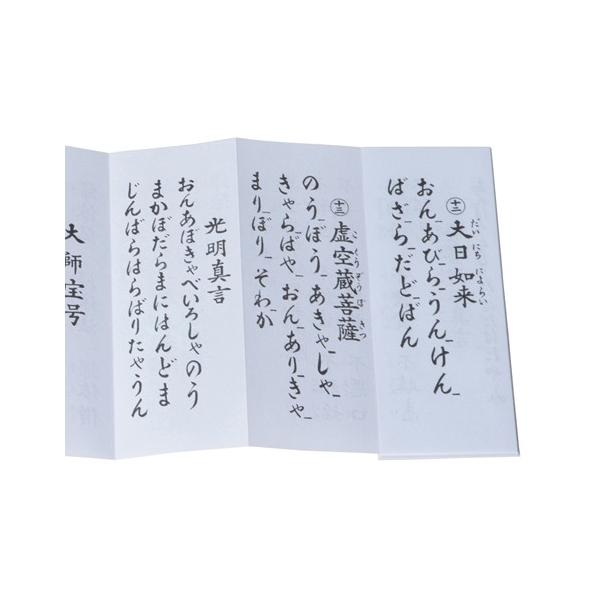 十二 大日如来
おんあびらうんけん
ばざらだどばん
十三 虚空蔵菩薩
のうぼうあきゃしゃ
きゃらばやおんありきゃ
まりぼりそわか
光明真言
おんあぼきゃべいろしゃのう
まかぼだらまにはんどま
じんばらはらばりたやうん
大師宝号